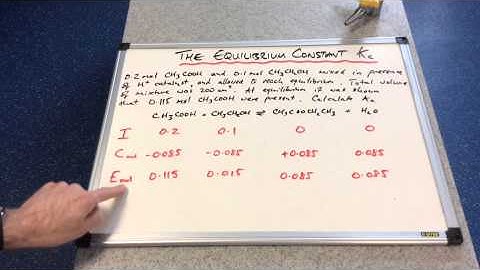 THE EQUILIBRIUM CONSTANT Kc
0.2mol CH3COOH and 0.1mol CH3CH2OH mixed in presence
of H+ catalyst, and allowed to reach equilibrium. Total volume
of mixture was 200cm3. At equilibrium it was shown
that 0.115 mol CH3COOH were present. Calculate Kc
CH3COOH + CH3CH2OH ⇌ CH3COOCH2CH3 + H2O
I 0.2 0.1 0 0
Cmol -0.085 -0.085 +0.085 0.085
Emol 0.115 0.015 0.085 0.085